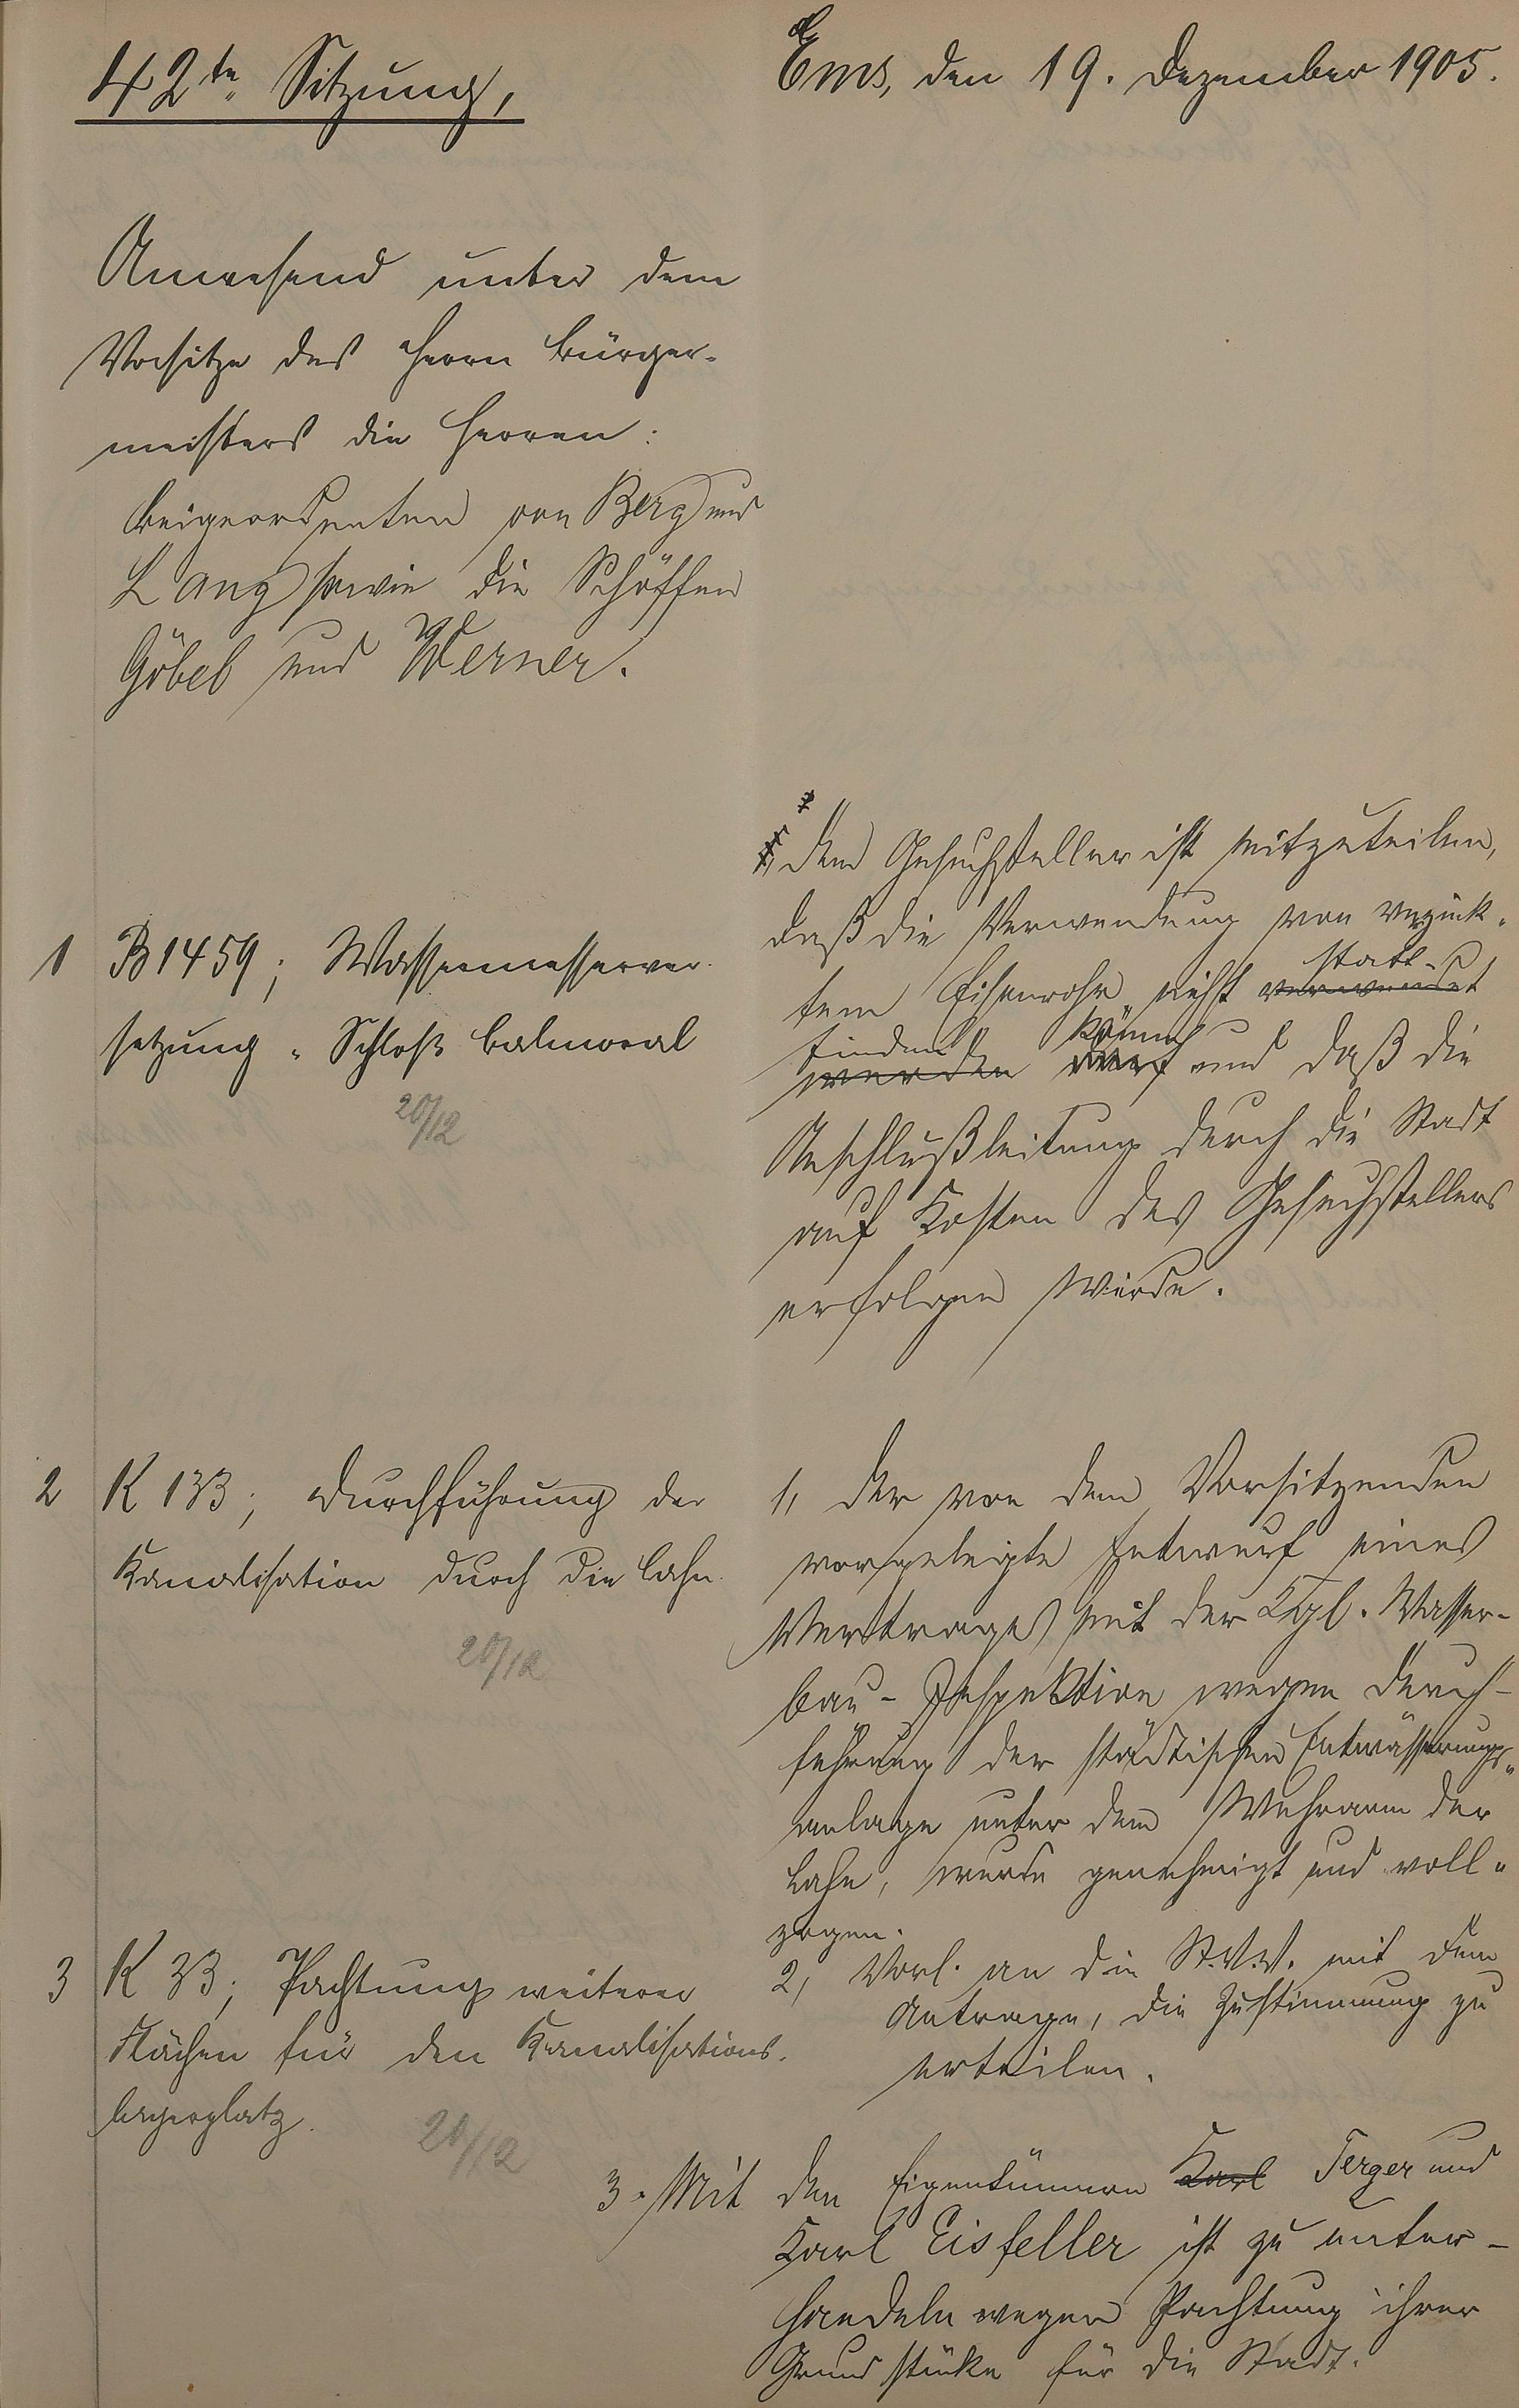 42te Sitzung,
Ems, den 19. Dezember 1905.
Anwesend unter dem
Vorsitze des Herrn Bürger-
meisters die Herren:
Beigeordneten von Berg und
Lang sowie die Schöffen
Göbel und Werner.
1 B 1459; Wassermesserver-
setzung "Schloß Balmoral
20/12
Dem Gesuchsteller ist mitzuteilen,
daß die Verwendung von verzink-
tem Eisenrohr nicht verwendet statt-
werden finden darf könne und daß die
Anschlußleitung durch die Stadt
auf Kosten des Gesuchstellers
erfolgen würde.
2 K 133; Durchführung der
Kanalisation durch die Lahn.
20/12
1, Der von dem Vorsitzenden
vorgelegte Entwurf eines
Vertrages mit der Kgl. Wasser-
bau-Inspektion wegen Durch-
führung der städtischen Entwässerungs-
anlage unter dem Wehrarm der
Lahn, wurde genehmigt und voll-
zogen.
2, Vorl. an die St.V.V. mit dem
Antrage, die Zustimmung zu
erteilen.
3 K 33; Pachtung weiterer
Flächen für den Kanalisations-
lagerplatz.
20/12
3. Mit den Eigentümern Karl Jerger und
Karl Eisfeller ist zu unter-
handeln wegen Pachtung ihrer
Grundstücke für die Stadt.